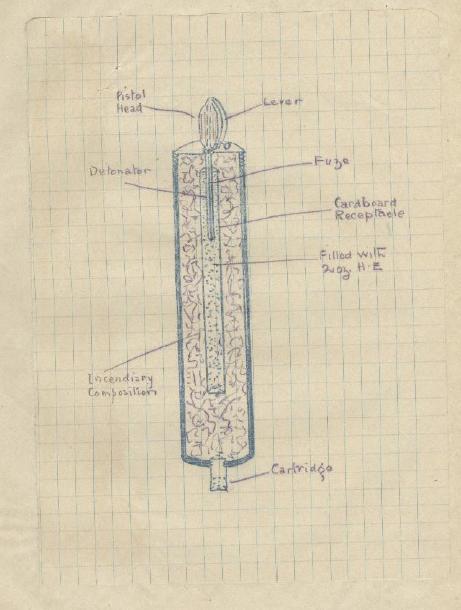 Pistol
Head
Lever
Detonator
Fuze
Cardboard
Receptacle
Filled with
2 oz. H-E
Incendiary
Composition
Cartridge